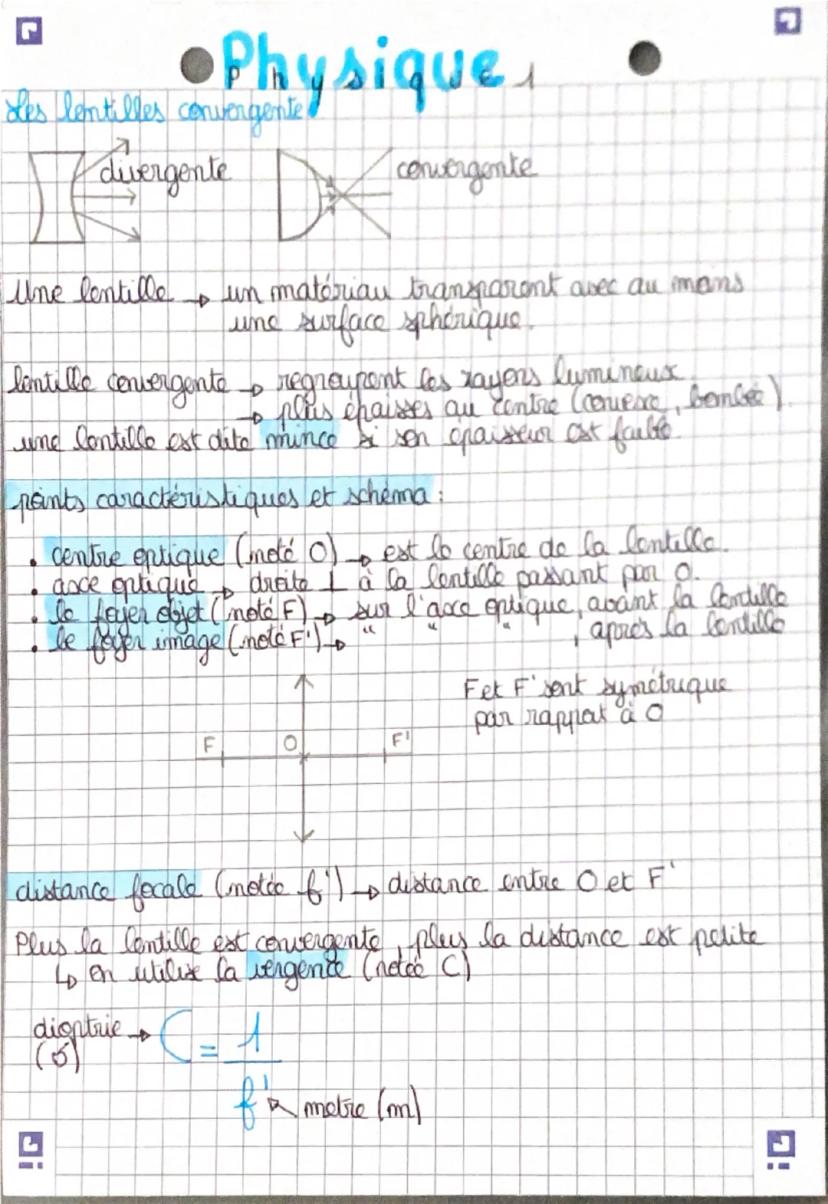 Physique 1
Les lentilles convergente
divergente
convergente
Une lentille → un matériau transparent avec au moins
une surface sphérique.
lentille convergente → regroupent les rayons lumineux
→ plus épaisses au centre (convexe, bombée).
une lentille est dite mince si son épaisseur est faible.
points caractéristiques et schéma :
• centre optique (noté O) → est le centre de la lentille.
• axe optique → droite ⊥ à la lentille passant par O.
• le foyer objet (noté F) → sur l'axe optique, avant la lentille
• le foyer image (noté F') → " " " , après la lentille
F et F' sont symétrique
par rapport à O
F O F'
distance focale (notée f') → distance entre O et F'
Plus la lentille est convergente, plus la distance est petite
↳ on utilise la vergence (notée C)
dioptrie → C = 1
(δ)
f' ↖ metre (m)